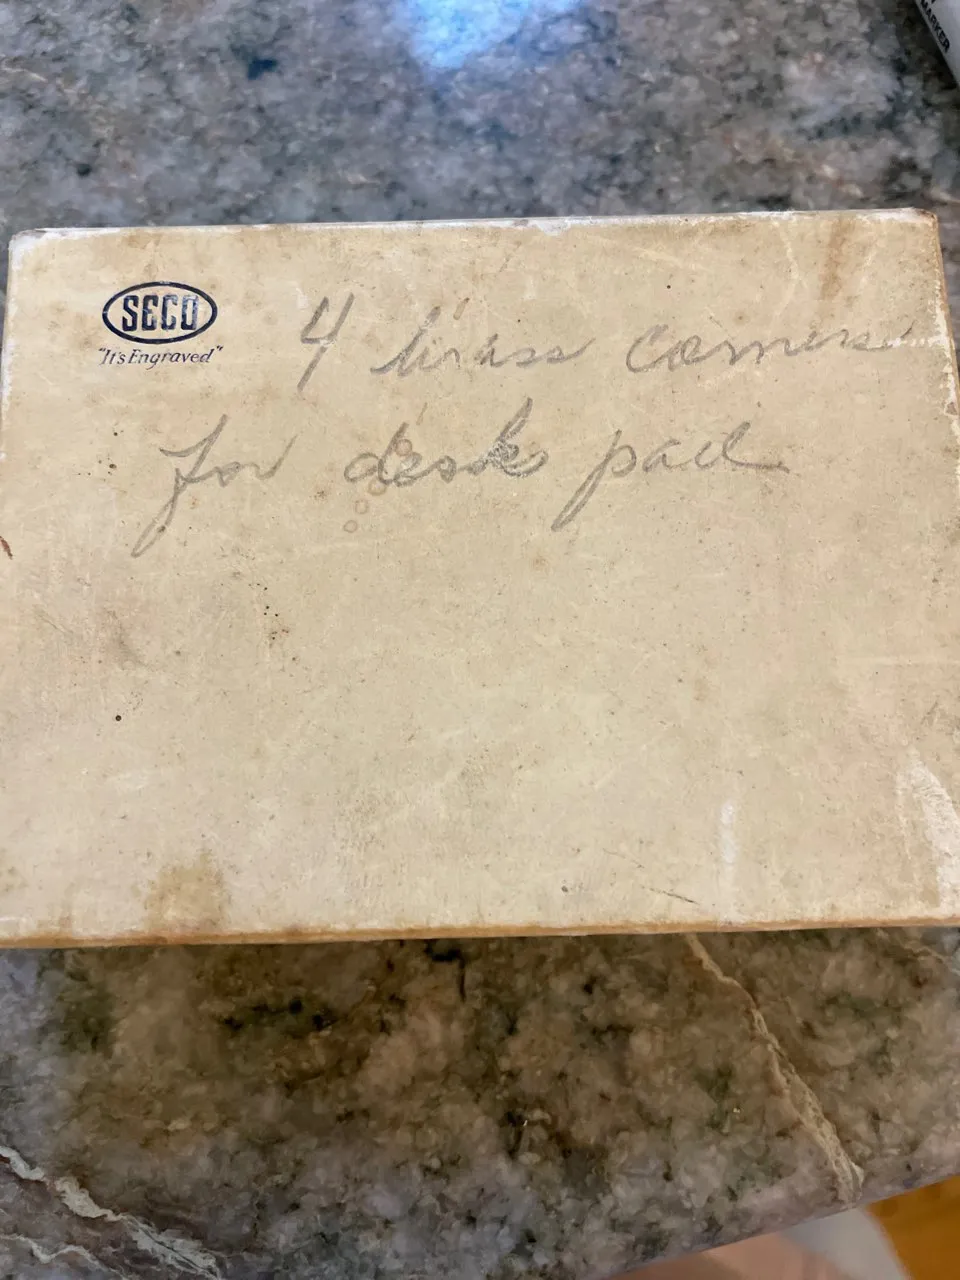 MARKER
SECO
"It's Engraved"
4 brass corners
for desk pad